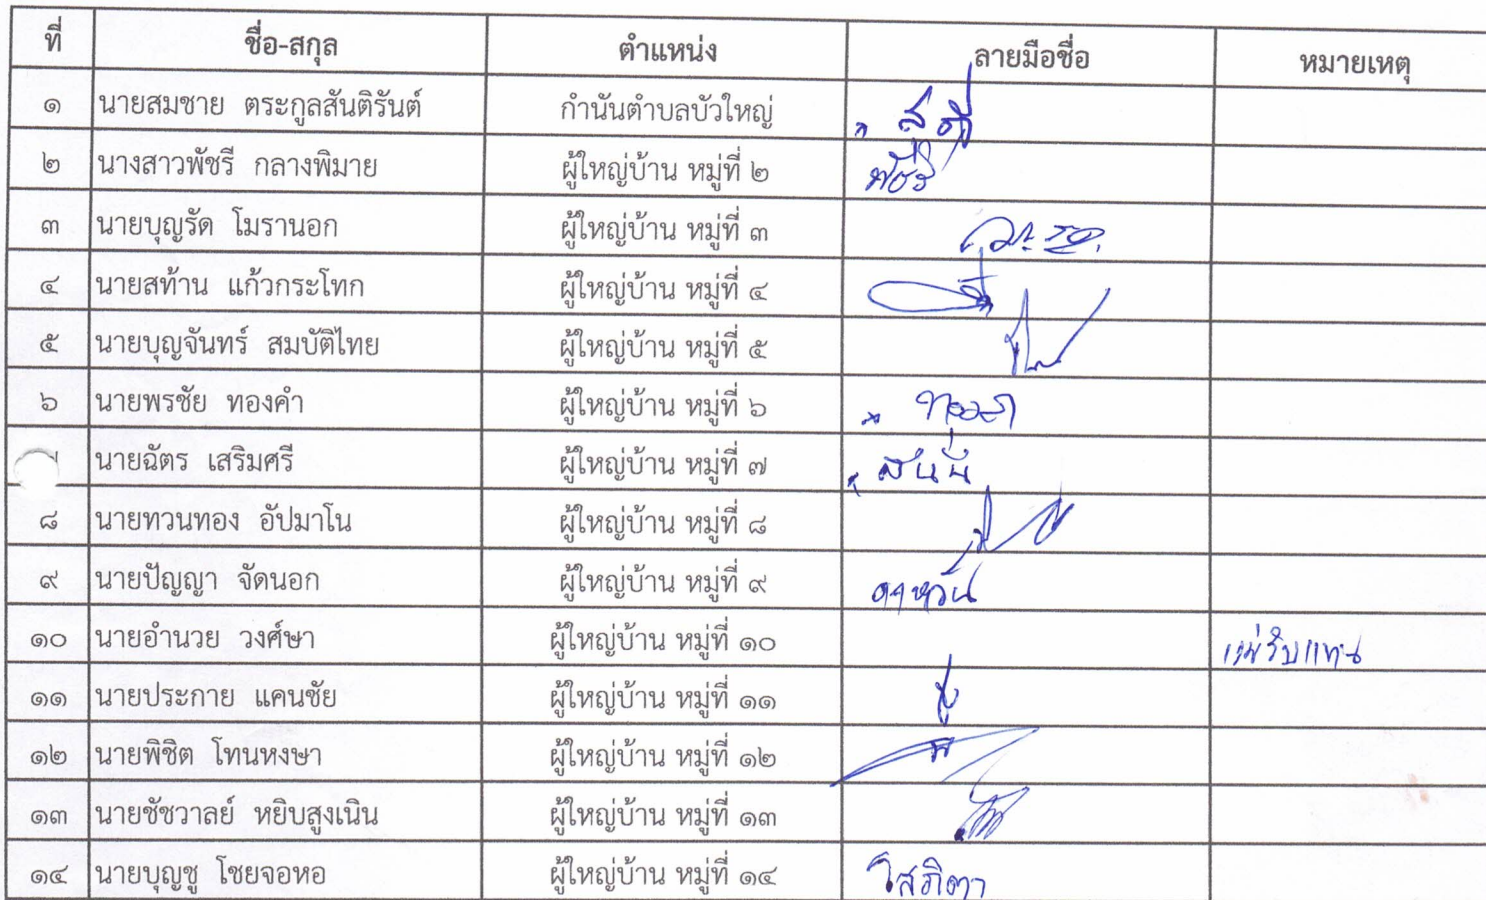 ที่ ชื่อ-สกุล ตำแหน่ง ลายมือชื่อ หมายเหตุ
๑ นายสมชาย ตระกูลสันติรันต์ กำนันตำบลบัวใหญ่
๒ นางสาวพัชรี กลางพิมาย ผู้ใหญ่บ้าน หมู่ที่ ๒ พัชรี
๓ นายบุญรัด โมรานอก ผู้ใหญ่บ้าน หมู่ที่ ๓
๔ นายสท้าน แก้วกระโทก ผู้ใหญ่บ้าน หมู่ที่ ๔
๕ นายบุญจันทร์ สมบัติไทย ผู้ใหญ่บ้าน หมู่ที่ ๕
๖ นายพรชัย ทองคำ ผู้ใหญ่บ้าน หมู่ที่ ๖
นายฉัตร เสริมศรี ผู้ใหญ่บ้าน หมู่ที่ ๗
๘ นายทวนทอง อัปมาโน ผู้ใหญ่บ้าน หมู่ที่ ๘
๙ นายปัญญา จัดนอก ผู้ใหญ่บ้าน หมู่ที่ ๙
๑๐ นายอำนวย วงศ์ษา ผู้ใหญ่บ้าน หมู่ที่ ๑๐ แม่รับแทน
๑๑ นายประกาย แคนชัย ผู้ใหญ่บ้าน หมู่ที่ ๑๑
๑๒ นายพิชิต โทนหงษา ผู้ใหญ่บ้าน หมู่ที่ ๑๒
๑๓ นายชัชวาลย์ หยิบสูงเนิน ผู้ใหญ่บ้าน หมู่ที่ ๑๓
๑๔ นายบุญชู โชยจอหอ ผู้ใหญ่บ้าน หมู่ที่ ๑๔